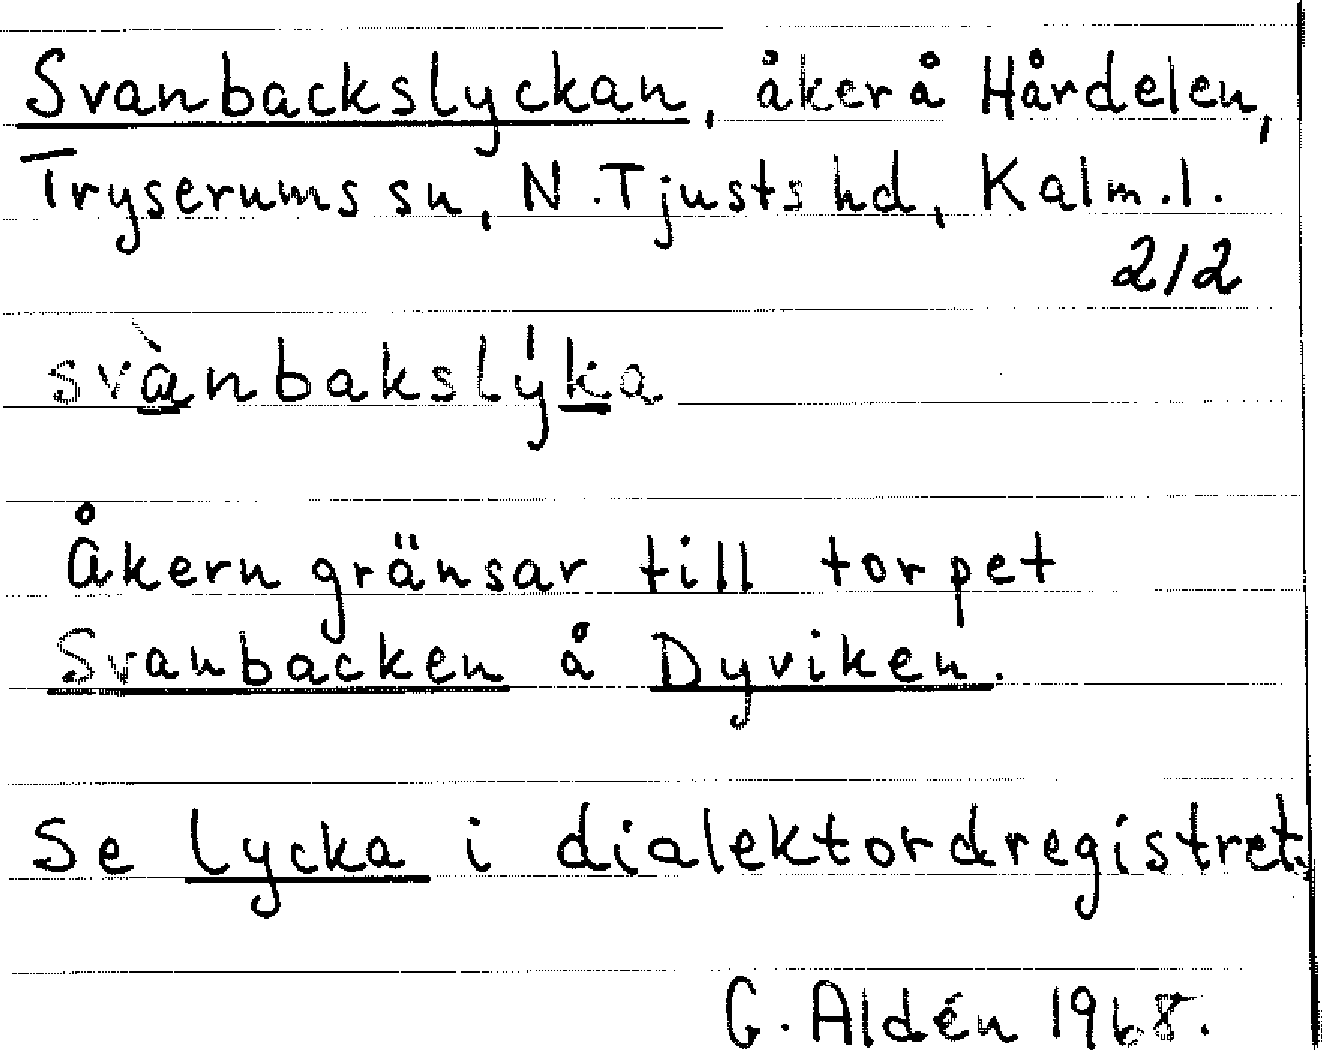 Svanbackslyckan, åker å Hårdelen,
Tryserums sn, N. Tjusts hd, Kalm. l.
2/2
svànbakslýka
Åkern gränsar till torpet
Svanbacken å Dyviken.
Se lycka i dialektordregistret.
G. Aldén 1968.